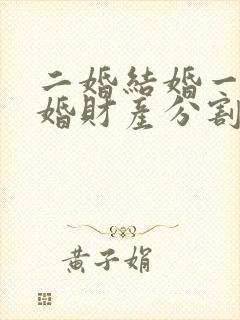 二婚結婚一
婚財產分割
黃子娟